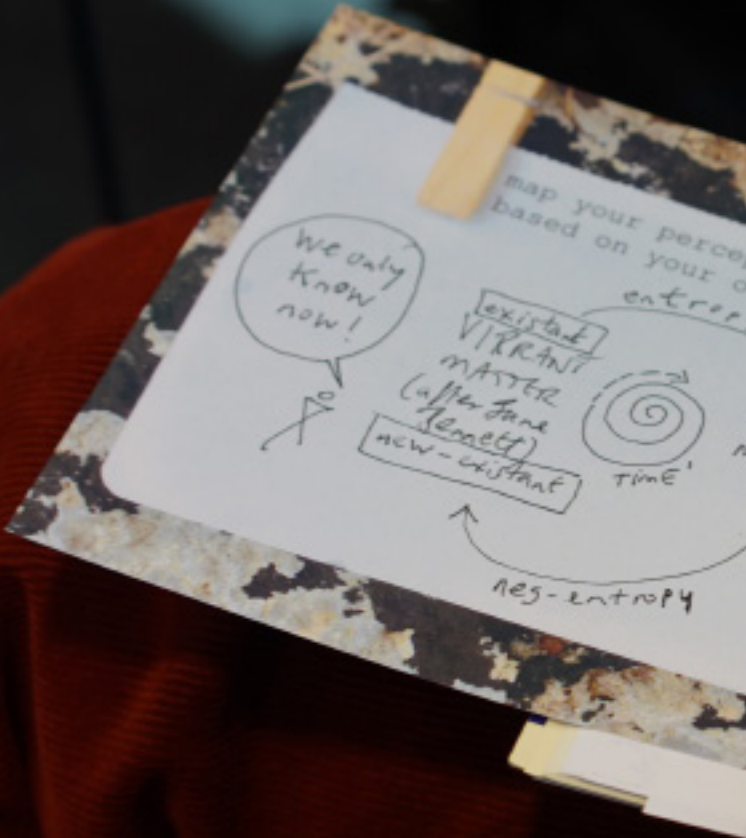 map your percep
based on your o
We only
Know
now!
entrop
existant
VIBRANT
MATTER
(after Jane
Bennett)
new-existant
TIME'
neg-entropy